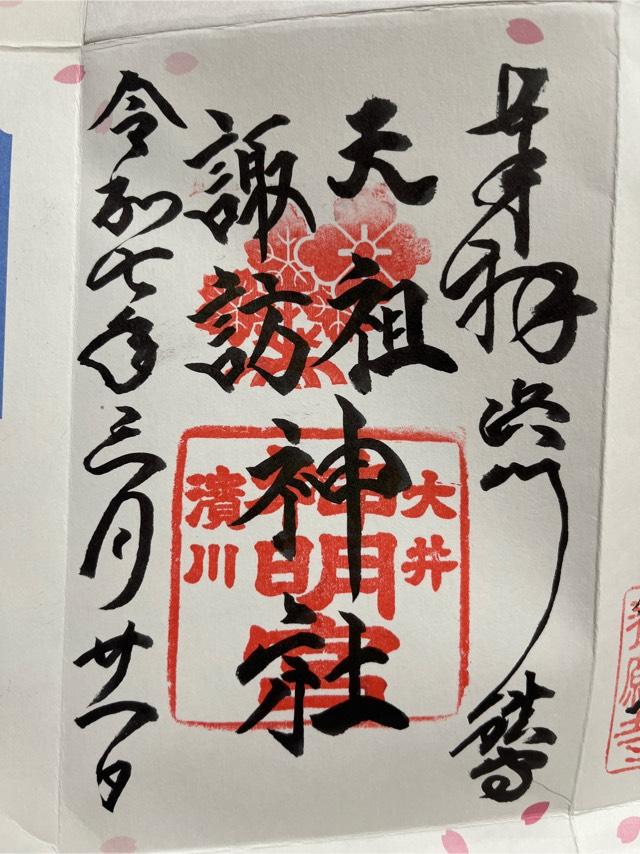 奉拝 浜川鎮守
天祖
諏訪
神社
令和七年三月廿一日
大井
濱川